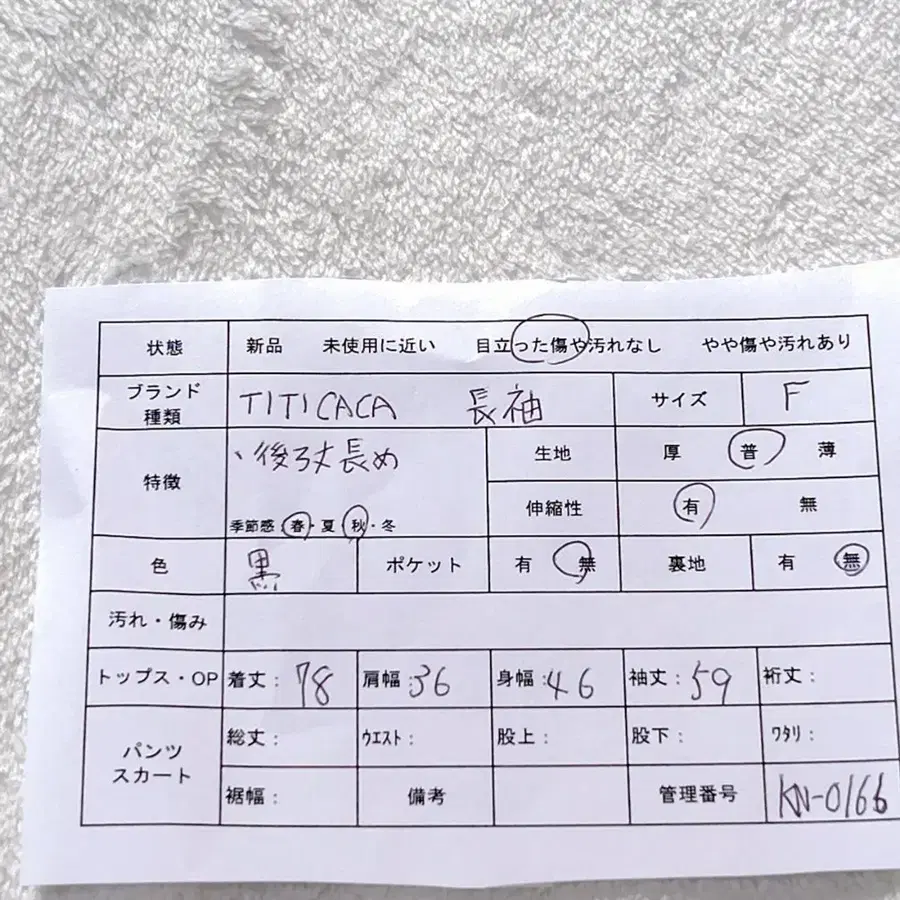 状態 新品 未使用に近い 目立った傷や汚れなし やや傷や汚れあり
ブランド種類 TITICACA 長袖 サイズ F
特徴 、後ろ丈長め 生地 厚 普 薄
季節感:春・夏・秋・冬 伸縮性 有 無
色 黒 ポケット 有 無 裏地 有 無
汚れ・傷み
トップス・OP 着丈:78 肩幅:36 身幅:46 袖丈:59 裄丈:
パンツスカート 総丈: ウエスト: 股上: 股下: ワタリ:
裾幅: 備考 管理番号 KN-0166